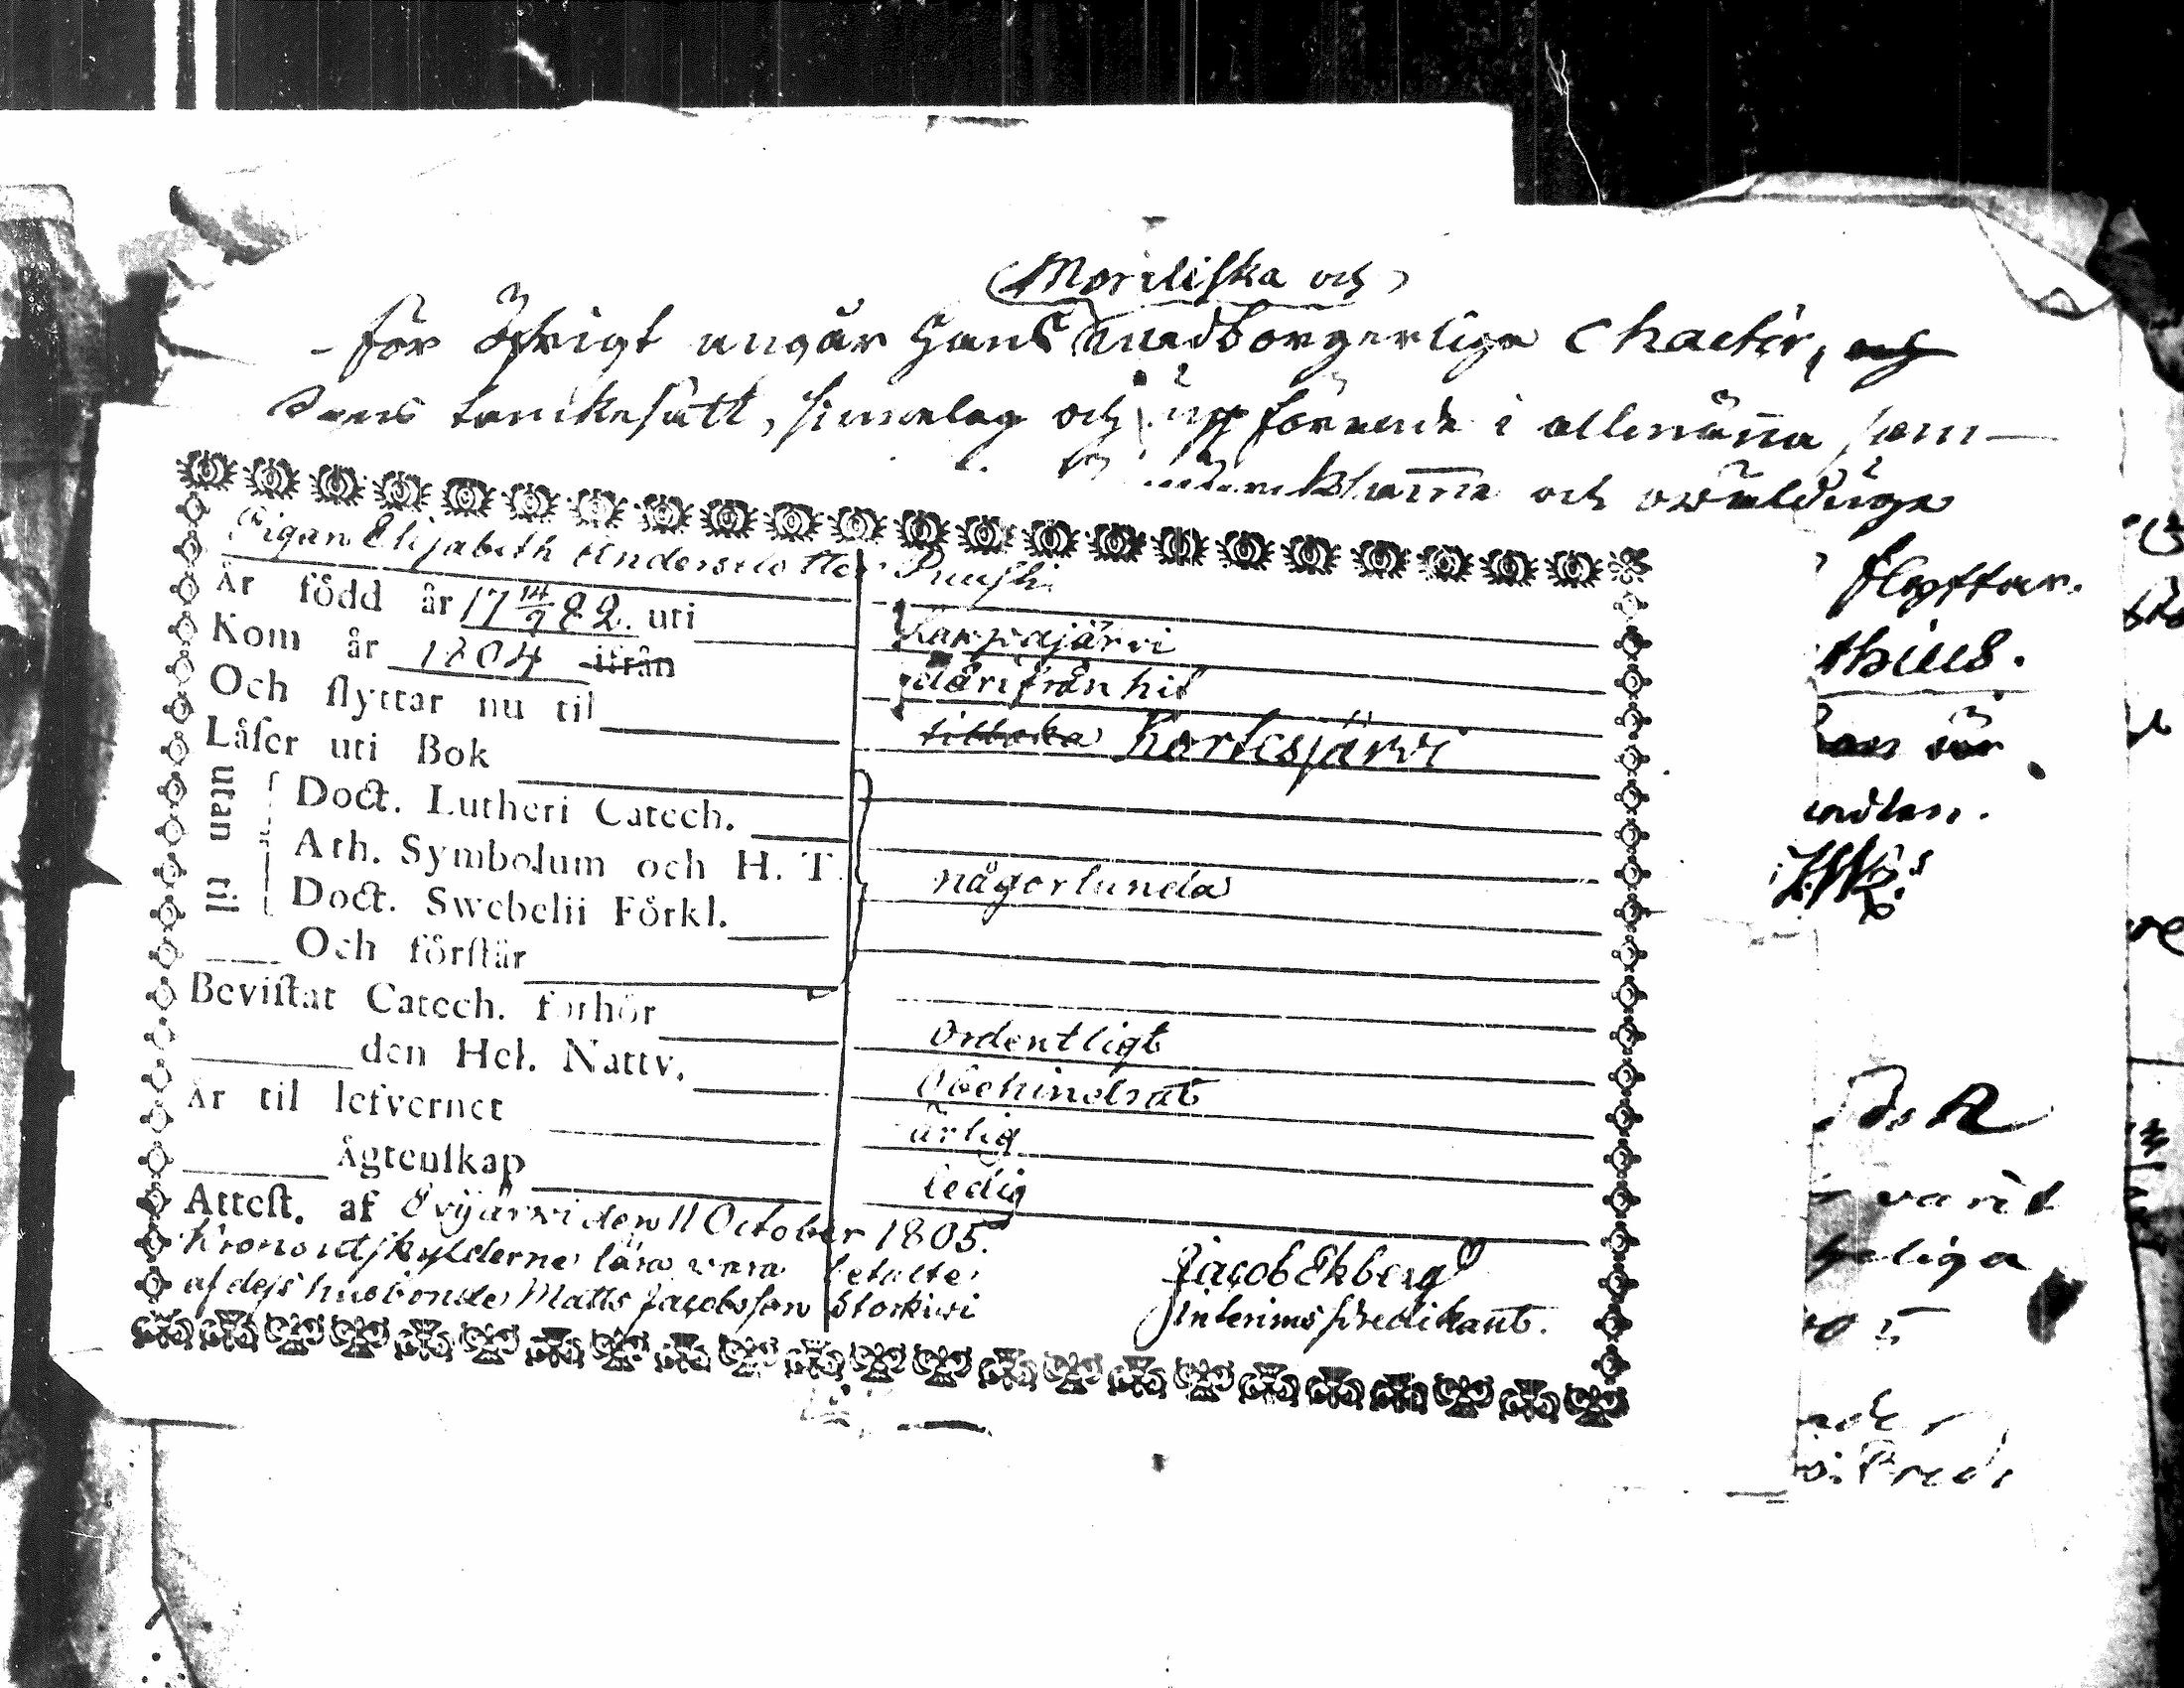 (Moraliska och)
för Öfrigt angår Hans medborgerliga Chactér, och
dens tankesätt, sinnelag och uppförande i allmänna sam-
och owäldige
flyttar.
thius.
Pigan Elisabeth Andersdotter Puuski
Är född år 17 14/9 82. uti Kaupajärvi
Kom år 1804 ifrån därifrån hit
Och flyttar nu til tillbaka Kortesjärvi
Låſer uti Bok
utan til
Doct. Lutheri Catech.
Ath. Symbolum och H. T.
Doct. Swebelii Förkl. någorlunda
Och förſtår
Beviſtat Catech. förhör ordentligt
den Hel. Nattv. Obehindrat
Är til lefvernet ärlig
Ägtenſkap ledig
Atteſt. af Evijärvi den 11 October 1805.
Kronoutskylderne lära vara betalte
af dess husbonde Matts Jacobsson Storkivi
Jacob Ekberg
Interims Predikant.
varit
geliga
Pred.